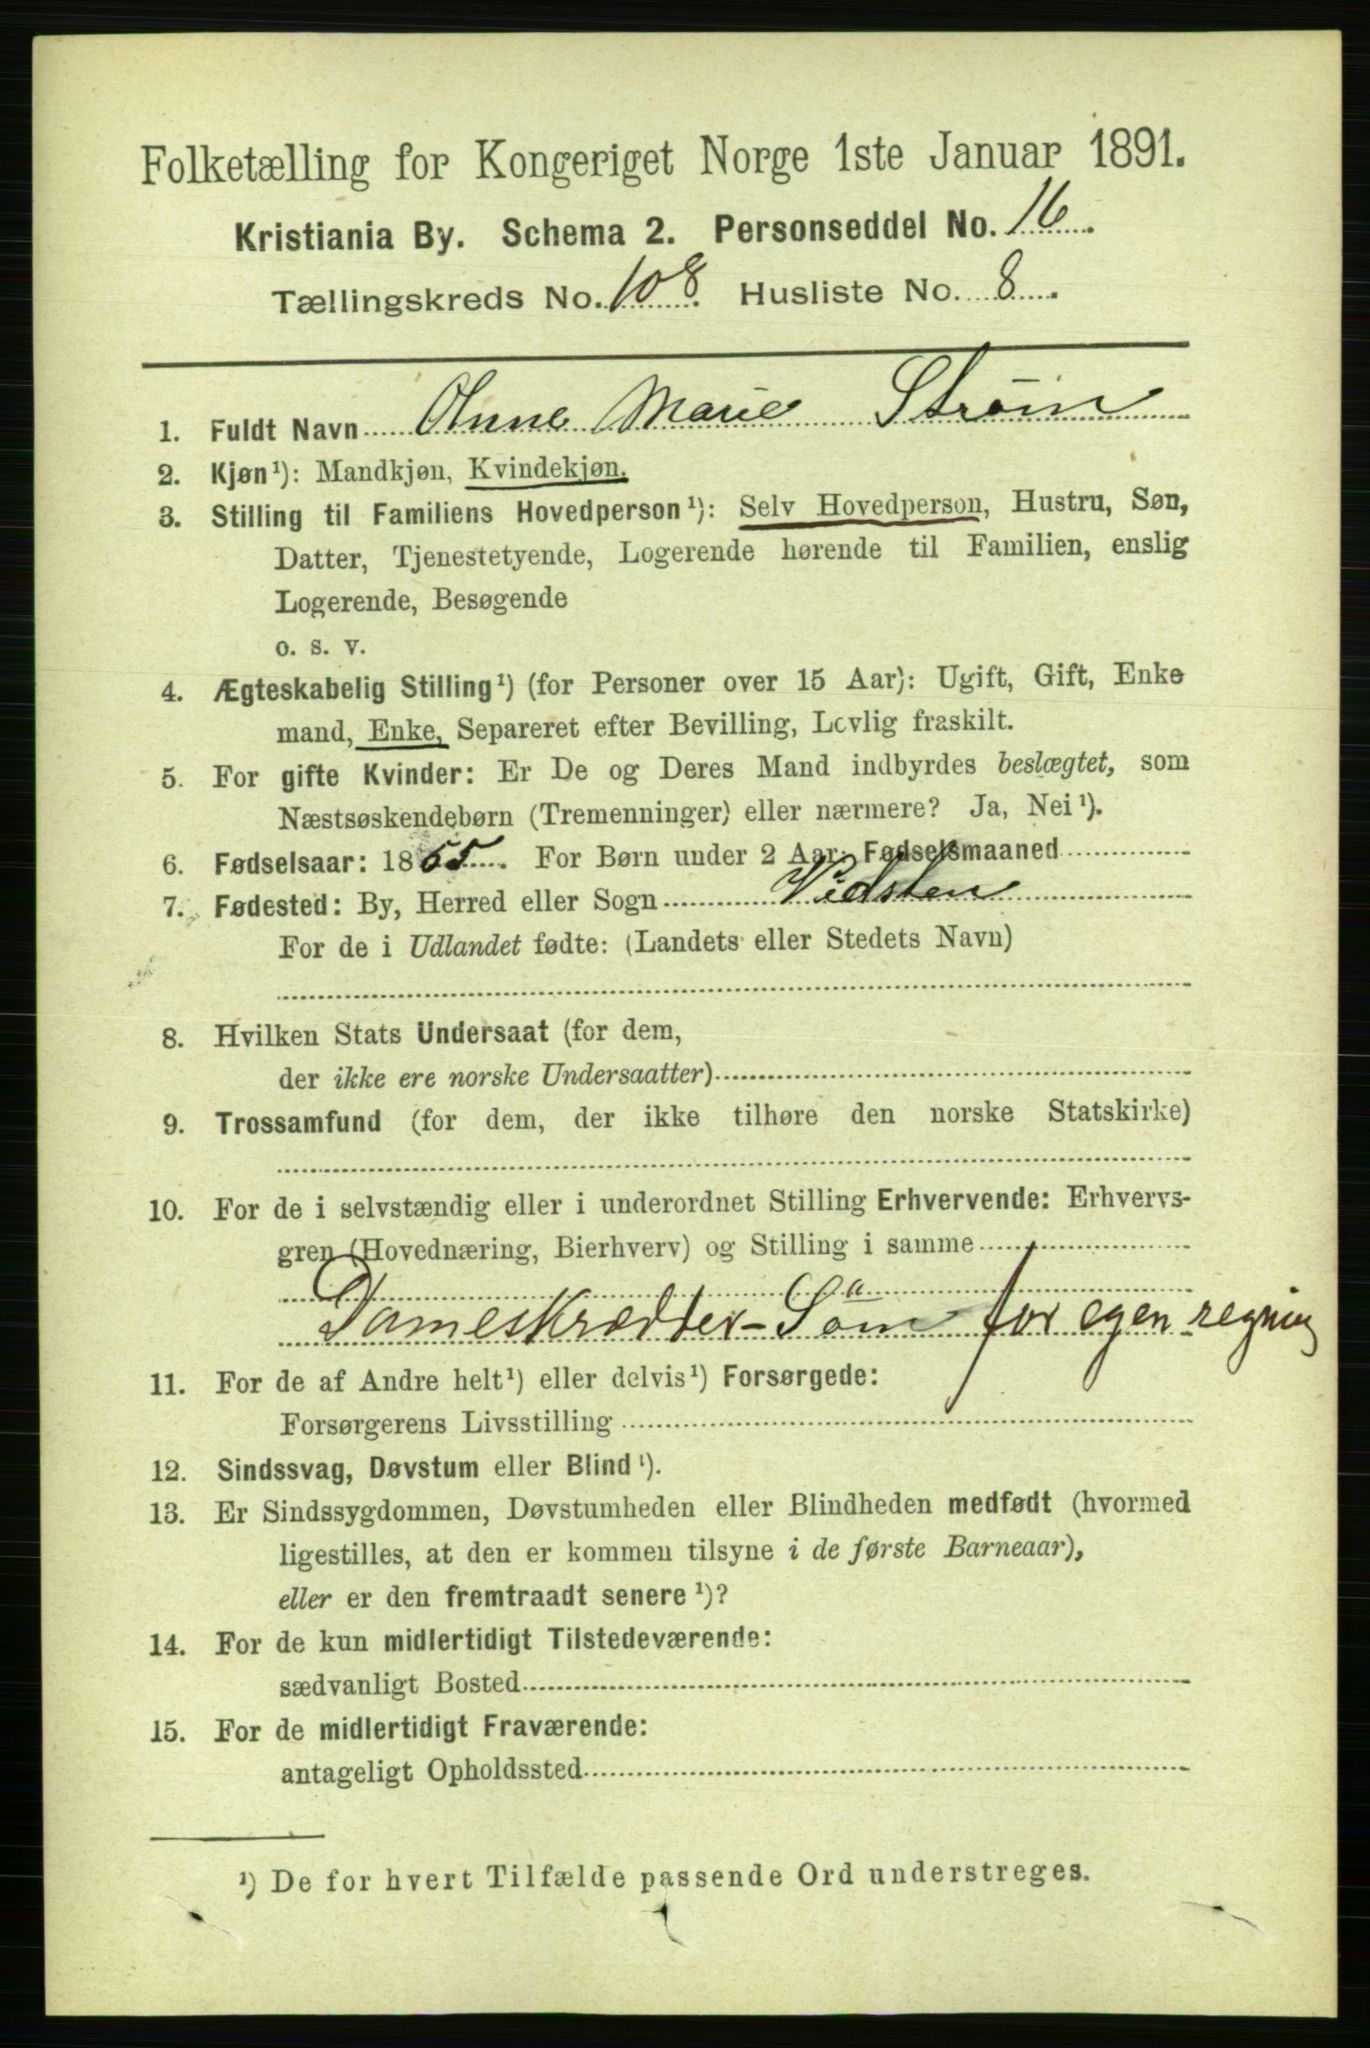 Folketælling for Kongeriget Norge 1ste Januar 1891.
Kristiania By. Schema 2. Personseddel No. 16.
Tællingskreds No. 108. Husliste No. 8.
1. Fuldt Navn Anne Marie Strøm
2. Kjøn¹): Mandkjøn, Kvindekjøn.
3. Stilling til Familiens Hovedperson¹): Selv Hovedperson, Hustru, Søn,
Datter, Tjenestetyende, Logerende hørende til Familien, enslig
Logerende, Besøgende
o. s. v.
4. Ægteskabelig Stilling¹) (for Personer over 15 Aar): Ugift, Gift, Enke
mand, Enke, Separeret efter Bevilling, Lovlig fraskilt.
5. For gifte Kvinder: Er De og Deres Mand indbyrdes beslægtet, som
Næstsøskendebørn (Tremenninger) eller nærmere? Ja, Nei¹).
6. Fødselsaar: 1865. For Børn under 2 Aar: Fødselsmaaned
7. Fødested: By, Herred eller Sogn Vidsten
For de i Udlandet fødte: (Landets eller Stedets Navn)
8. Hvilken Stats Undersaat (for dem,
der ikke ere norske Undersaatter)
9. Trossamfund (for dem, der ikke tilhøre den norske Statskirke)
10. For de i selvstændig eller i underordnet Stilling Erhvervende: Erhvervs-
gren (Hovednæring, Bierhverv) og Stilling i samme
Dameskrædder-Söm for egen regning
11. For de af Andre helt¹) eller delvis¹) Forsørgede:
Forsørgerens Livsstilling
12. Sindssvag, Døvstum eller Blind¹).
13. Er Sindssygdommen, Døvstumheden eller Blindheden medfødt (hvormed
ligestilles, at den er kommen tilsyne i de første Barneaar),
eller er den fremtraadt senere¹)?
14. For de kun midlertidigt Tilstedeværende:
sædvanligt Bosted
15. For de midlertidigt Fraværende:
antageligt Opholdssted
¹) De for hvert Tilfælde passende Ord understreges.